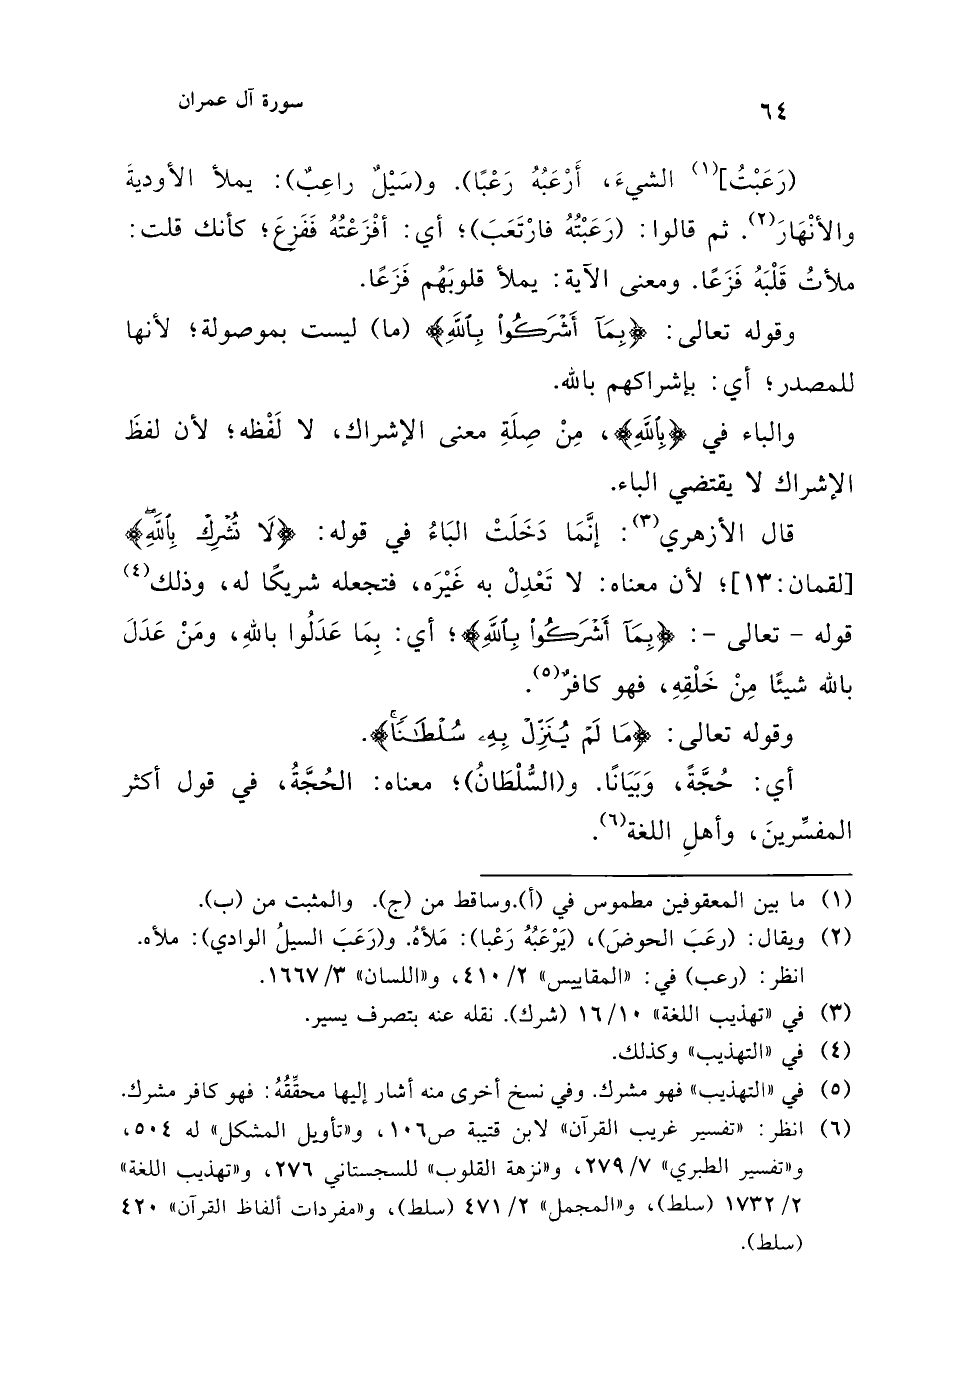 ٦٤ سورة آل عمران
(رَعَبْتُ](١) الشيءَ، أَرْعَبُهُ رَعْبًا). و(سَيْلٌ راعِبٌ): يملأ الأوديةَ
والأنْهَارَ(٢). ثم قالوا: (رَعَبْتُهُ فارْتَعَبَ)؛ أي: أفْزَعْتُهُ فَفَزِعَ؛ كأنك قلت:
ملأتُ قَلْبَهُ فَزَعًا. ومعنى الآية: يملأ قلوبَهُم فَزَعًا.
وقوله تعالى: ﴿بِمَآ أَشْرَكُواْ بِٱللَّهِ﴾ (ما) ليست بموصولة؛ لأنها
للمصدر؛ أي: بإشراكهم بالله.
والباء في ﴿بِٱللَّهِ﴾، مِنْ صِلَةِ معنى الإشراك، لا لَفْظه؛ لأن لفظَ
الإشراك لا يقتضي الباء.
قال الأزهري(٣): إنَّمَا دَخَلَتْ البَاءُ في قوله: ﴿لَا تُشْرِكْ بِٱللَّهِۖ﴾
[لقمان: ١٣]؛ لأن معناه: لا تَعْدِلْ به غَيْرَه، فتجعله شريكًا له، وذلك(٤)
قوله - تعالى -: ﴿بِمَآ أَشْرَكُواْ بِٱللَّهِ﴾؛ أي: بِمَا عَدَلُوا باللهِ، ومَنْ عَدَلَ
بالله شيئًا مِنْ خَلْقِهِ، فهو كافرٌ(٥).
وقوله تعالى: ﴿مَا لَمْ يُنَزِّلْ بِهِۦ سُلْطَٰنٗاۚ﴾.
أي: حُجَّةً، وَبَيَانًا. و(السُّلْطَانُ)؛ معناه: الحُجَّةُ، في قول أكثر
المفسِّرينَ، وأهلِ اللغة(٦).
(١) ما بين المعقوفين مطموس في (أ).وساقط من (ج). والمثبت من (ب).
(٢) ويقال: (رعَبَ الحوضَ)، (يَرْعَبُهُ رَعْبا): مَلأهُ. و(رَعَبَ السيلُ الوادي): ملأه.
انظر: (رعب) في: «المقاييس» ٢/ ٤١٠، و«اللسان» ٣/ ١٦٦٧.
(٣) في «تهذيب اللغة» ١٠/ ١٦ (شرك). نقله عنه بتصرف يسير.
(٤) في «التهذيب» وكذلك.
(٥) في «التهذيب» فهو مشرك. وفي نسخ أخرى منه أشار إليها محقِّقُهُ: فهو كافر مشرك.
(٦) انظر: «تفسير غريب القرآن» لابن قتيبة ص١٠٦، و«تأويل المشكل» له ٥٠٤،
و«تفسير الطبري» ٧/ ٢٧٩، و«نزهة القلوب» للسجستاني ٢٧٦، و«تهذيب اللغة»
٢/ ١٧٣٢ (سلط)، و«المجمل» ٢/ ٤٧١ (سلط)، و«مفردات ألفاظ القرآن» ٤٢٠
(سلط).